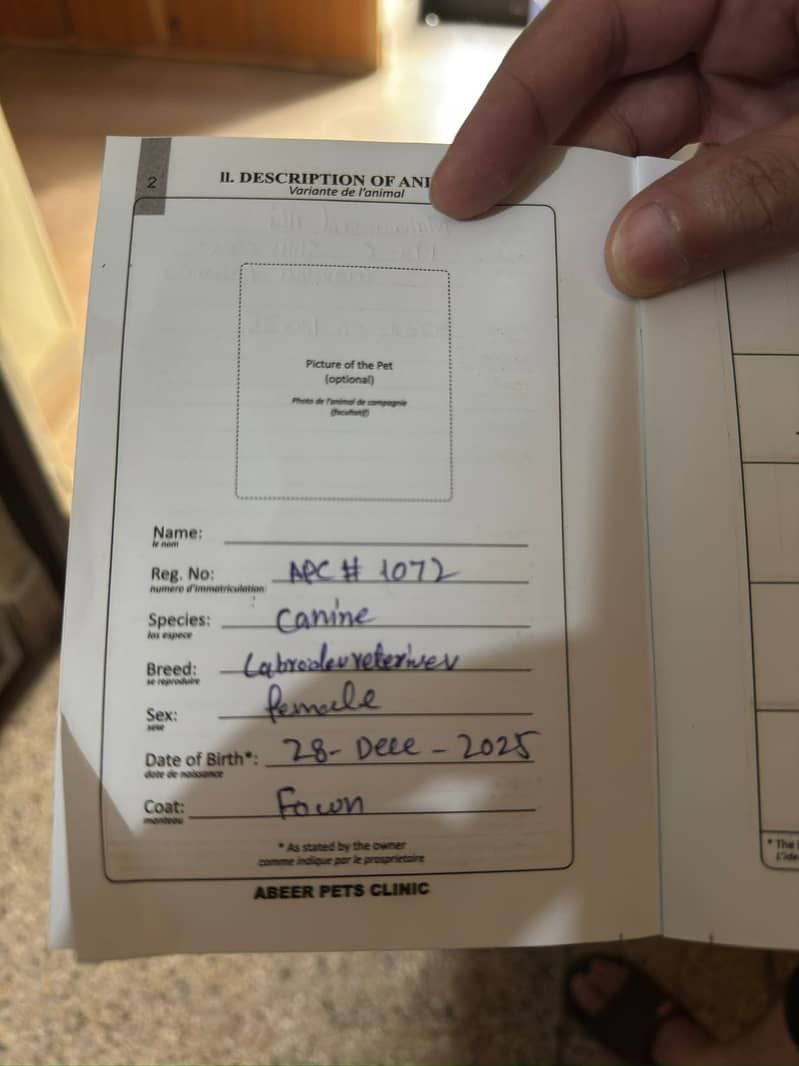 2
II. DESCRIPTION OF ANI
Variante de l'animal
Picture of the Pet
(optional)
Photo de l'animal de compagnie
(facultatif)
Name:
le nom
Reg. No: APC # 1072
numero d'immatriculation
Species: Canine
las espece
Breed: Labradeu reteriwer
se reproduire
Sex: female
sexe
Date of Birth*: 28- Dece - 2025
date de naissance
Coat: Fown
manteau
* As stated by the owner
comme indique par le prosprietaire
ABEER PETS CLINIC
* The
L'ide